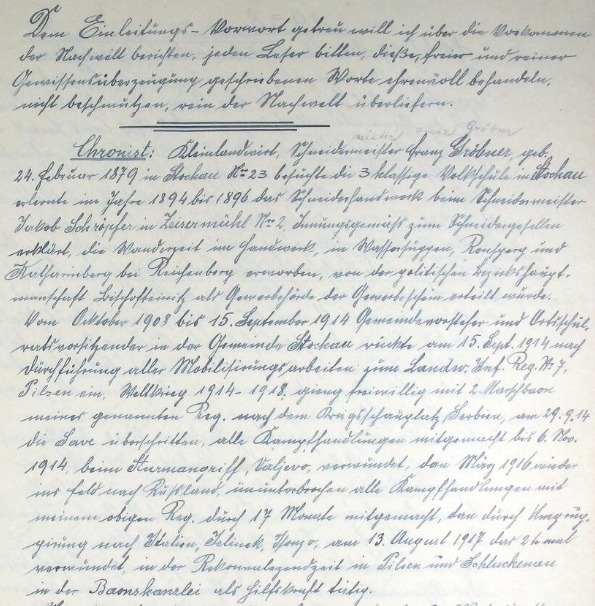 Dem Einleitungs-Vorwort getreu will ich über die Vorkommen
der Nachwelt berichten, jeden Leser bitten, dieße, freier und reiner
Gewissensüberzeugung geschriebenen Worte ehrenvoll behandeln,
nicht beschmutzen, rein der Nachwelt überliefern.
Chronist: Kleinlandwirt, Schneidermeister Franz Gröbner, geb.
24. Februar 1879 in Stockau No 23 besuchte die 3 klassige Volkschule in Stockau
erlernte im Jahre 1894 bis 1896 das Schneiderhandwerk beim Schneidermeister
Jakob Schröpfer in No 2, Innungsgemäß zum Schneidergesellen
erklärt, die Wanderzeit im Handwerk, in Ronsperg und
Katharinberg bei Reichenberg erworben, von der politischen Bezirkshaupt-
mannschaft Bischofteinitz als Gewerbehörde der Gewerbschein erteilt wurde.
Vom Oktober 1908 bis 15. September 1914 Gemeindevorsteher und Ortsschul-
ratsvorsitzender in der Gemeinde Stockau rückte am 15. Sept. 1914 nach
Durchführung aller Mobilisirungsarbeiten zum Landw. Inf. Reg. No 7,
Pilsen ein. Weltkrieg 1914-1918. gieng freiwillig mit 2 Marschbaon
meines genannten Reg. nach dem Krigsschauplatz Serbien, am 29.9.14
die Save überschritten, alle Kampfhandlungen mitgemacht bis 6. Nov.
1914, beim Sturmangriff, Valjevo, verwundet, dan März 1916 wieder
ins Feld nach Rußland, ununterbrochen alle Kampfhandlungen mit
meinem obigen Reg. durch 17 Monate mitgemacht, dan durch
nach Italien, Isonzo, am 13. August 1917 das 2te mal
verwundet, in der Rekonvaleszendzeit in Pilsen und Schluckenau
in der Baonskanzlei als Hilfskraft tätig.